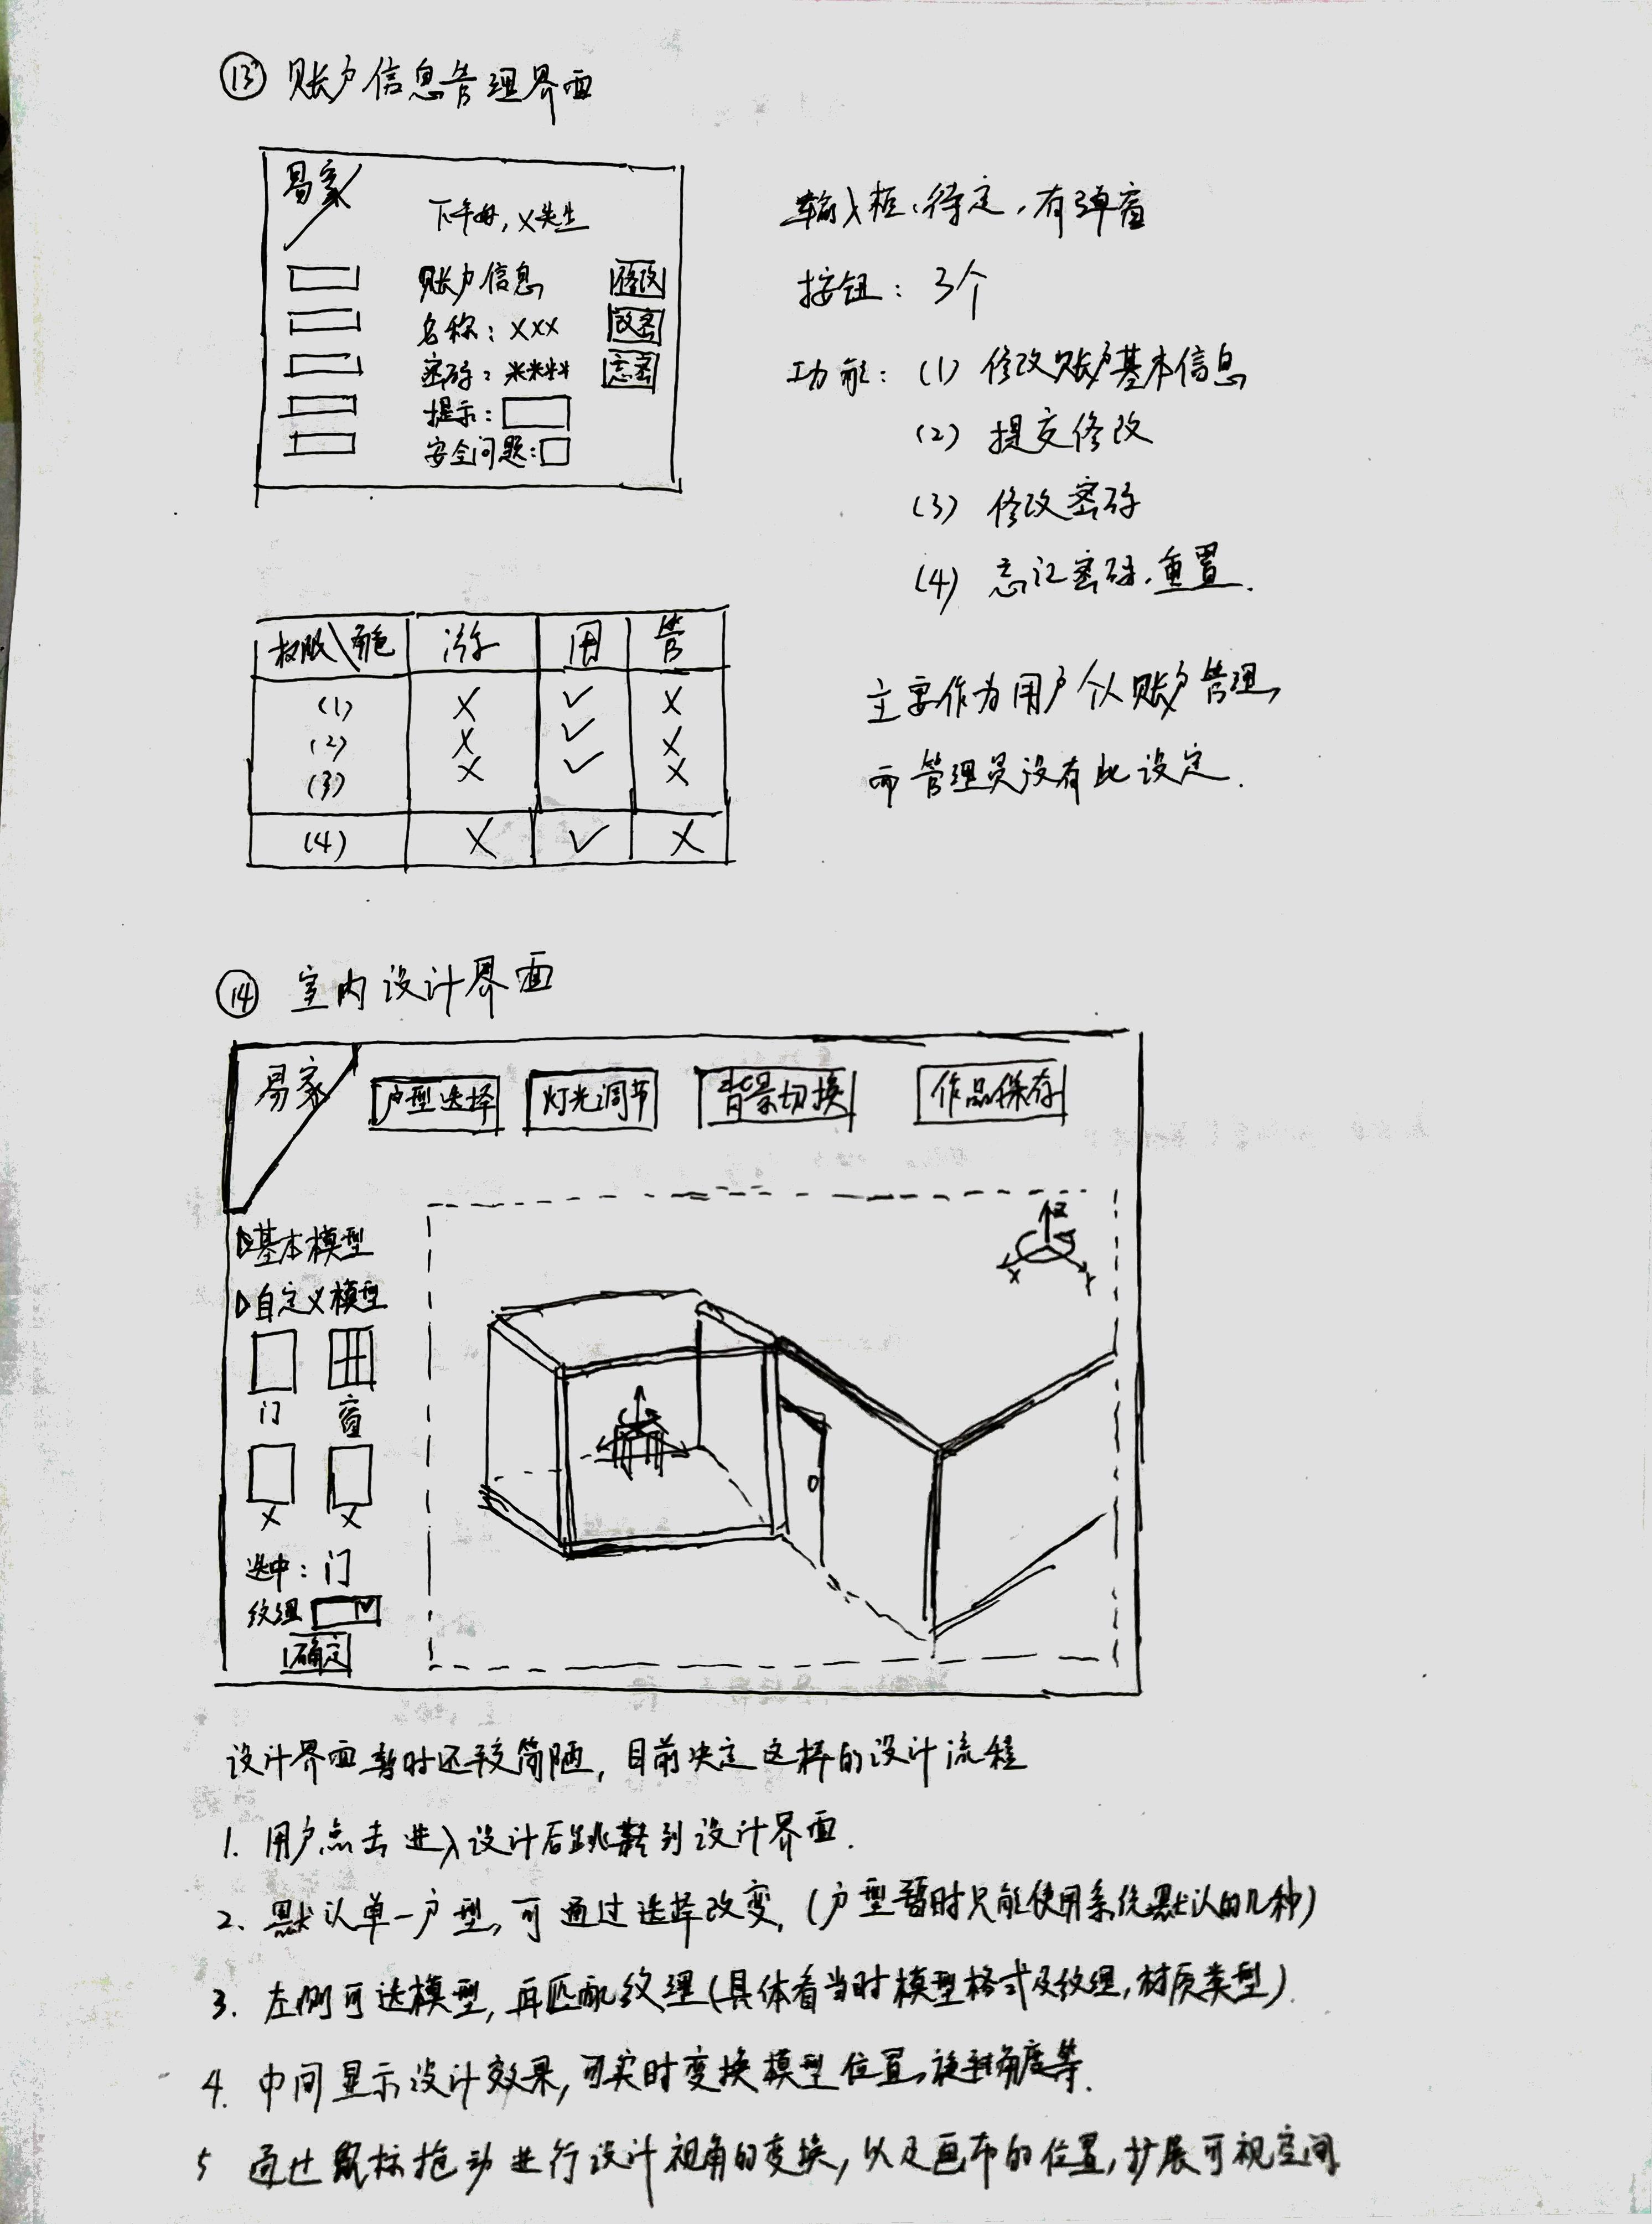 ⑬ 账户信息管理界面
易家
下午好,X先生
账户信息 修改
名称:XXX 改密
密码:**** 忘密
提示:
安全问题:
输入框:待定,有弹窗
按钮:3个
功能:(1) 修改账户基本信息
(2) 提交修改
(3) 修改密码
(4) 忘记密码,重置.
权限\角色 游 用 管
(1) X ✓ X
(2) X ✓ X
(3) X ✓ X
(4) X ✓ X
主要作为用户个人账户管理,
而管理员没有此设定.
⑭ 室内设计界面
易家 户型选择 灯光调节 背景切换 作品保存
Z
X Y
▷基本模型
▷自定义模型
门 窗
X X
选中:门
纹理
确定
设计界面暂时还较简陋,目前决定这样的设计流程
1. 用户点击进入设计后跳转到设计界面.
2. 默认单一户型,可通过选择改变,(户型暂时只能使用系统默认的几种)
3. 左侧可选模型,再匹配纹理(具体看当时模型格式及纹理,材质类型).
4. 中间显示设计效果,可实时变换模型位置,旋转角度等.
5 通过鼠标拖动进行设计视角的变换,以及画布的位置,扩展可视空间